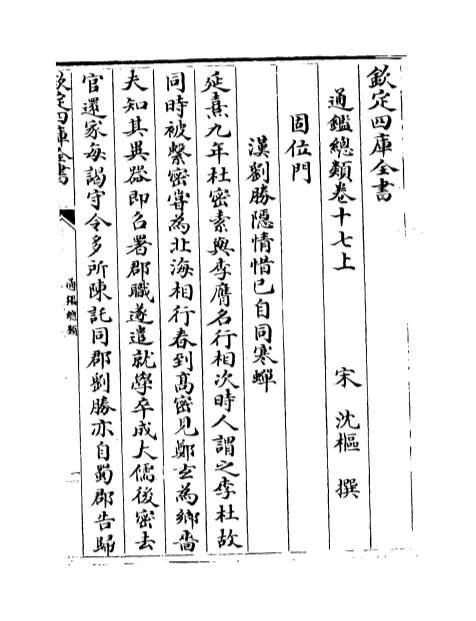 欽定四庫全書
通鑑總類卷十七上
宋 沈樞 撰
固位門
漢劉勝隱情惜已自同寒蟬
延熹九年杜密素與李膺名行相次時人謂之李杜故
同時被繫密嘗為北海相行春到高密見鄭玄為鄉嗇
夫知其異器即召署郡職遂遣就學卒成大儒後密去
官還家每謁守令多所陳託同郡劉勝亦自蜀郡告歸
欽定四庫全書
通鑑總類
一